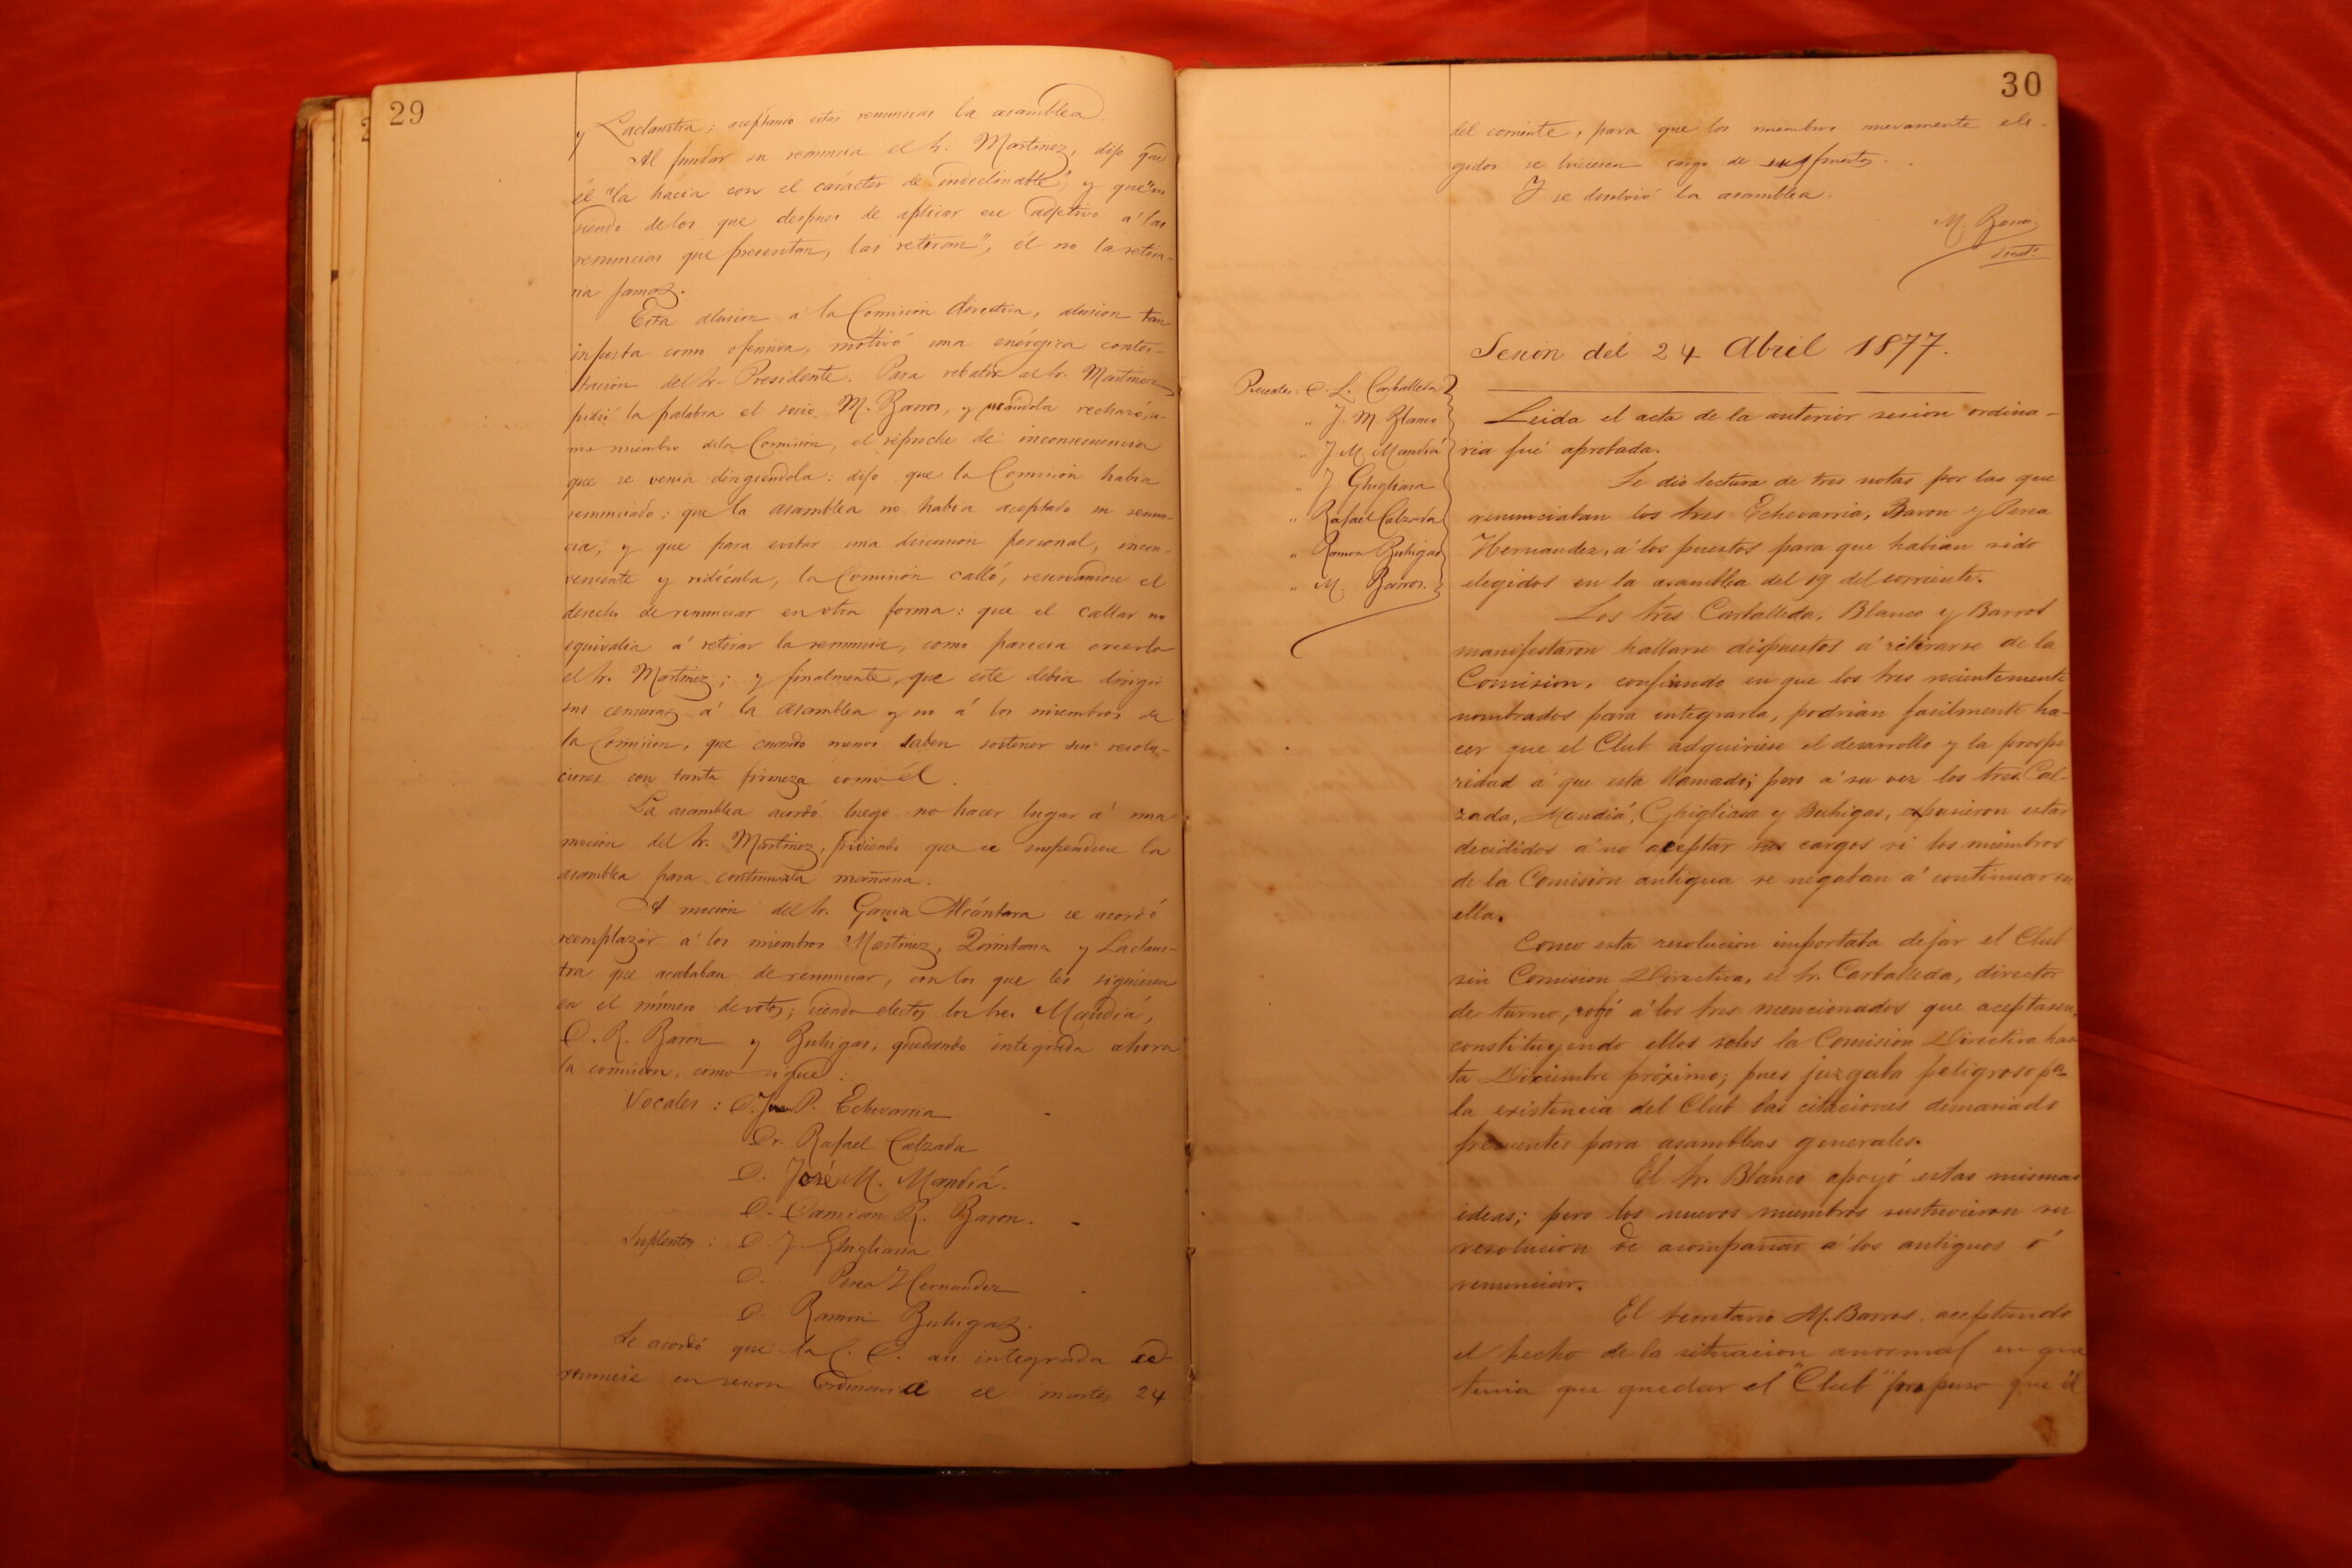 29
y Laclaustra; aceptando estas renuncias la asamblea.
Al fundar su renuncia el Sr. Martinez, dijo que
él "la hacia con el carácter de indeclinable", y que "no
siendo de los que despues de aplicar ese adjetivo á las
renuncias que presentan, las retiran", él no la retira-
ria jamas.
Esta alusion á la Comision directiva, alusion tan
injusta como ofensiva, motivó una enérgica contes-
tacion del Sr. Presidente. Para rebatir al Sr. Martinez
pidió la palabra el socio M. Barros, y usándola rechazó, co-
mo miembro de la Comision, el reproche de inconsecuencia
que se venia dirigiéndola: dijo que la Comision habia
renunciado; que la asamblea no habia aceptado su renun-
cia; y que para evitar una discusion personal, incon-
veniente y ridícula, la Comision calló, reservandose el
derecho de renunciar en otra forma: que el callar no
equivalia á retirar la renuncia, como parecia creerlo
el Sr. Martinez; y finalmente, que este debia dirigir
sus censuras á la asamblea y no á los miembros de
la Comision, que cuando menos saben sostener sus resolu-
ciones con tanta firmeza como él.
La asamblea acordó luego no hacer lugar á una
mocion del Sr. Martinez, pidiendo que se suspendiese la
asamblea para continuarla mañana.
A mocion del Sr. Garcia Alcántara se acordó
reemplazar á los miembros Martinez, Quintana y Laclaus-
tra que acababan de renunciar, con los que les siguiesen
en el número de votos; siendo electos los Sres Mandiá,
D. R. Baron y Buhigas, quedando integrada ahora
la comision, como sigue:
Vocales: D. Juan P. Echevarria
Dr. Rafael Calzada
D. José M. Mandiá.
D. Damian R. Baron.
Suplentes: D. J. Ghigliasa
D. Perea Hernandez
D. Ramon Buhigas.
Se acordó que la C. D. asi integrada se
reuniese en sesion ordinaria el martes 24
30
del corriente, para que los miembros nuevamente ele-
gidos se hiciesen cargo de sus puestos.
Y se disolvió la asamblea.
M. Barros
Secret.º
Sesion del 24 Abril 1877.
Presentes: D. L. Carballeda
" J. M. Blanco
" J. M. Mandiá
" J. Ghigliasa
" Rafael Calzada
" Ramon Buhigas
" M. Barros.
Leida el acta de la anterior sesion ordina-
ria fué aprobada.
Se dió lectura de tres notas por las que
renunciaban los Sres Echevarria, Baron y Perea
Hernandez, á los puestos para que habian sido
elegidos en la asamblea del 19 del corriente.
Los Sres Carballeda, Blanco y Barros
manifestaron hallarse dispuestos á retirarse de la
Comision, confiando en que los Sres recientemente
nombrados para integrarla, podrian facilmente ha-
cer que el Club adquiriese el desarrollo y la prospe
ridad á que esta llamado; pero á su vez los Sres. Cal-
zada, Mandiá, Ghigliasa y Buhigas, expusieron estar
decididos á no aceptar sus cargos si los miembros
de la Comision antigua se negaban á continuar en
ella.
Como esta resolucion importaba dejar el Club
sin Comision Directiva, el Sr. Carballeda, director
de turno, rogó á los Sres mencionados que aceptasen,
constituyendo ellos solos la Comision Directiva has
ta Diciembre próximo; pues juzgaba peligroso pa
la existencia del Club las citaciones demasiado
frecuentes para asambleas generales.
El Sr. Blanco apoyó estas mismas
ideas; pero los nuevos miembros sostuvieron su
resolucion de acompañar á los antiguos ó
renunciar.
El secretario M. Barros, aceptando
el hecho de la situacion anormal en que
tenia que quedar el "Club" propuso que él